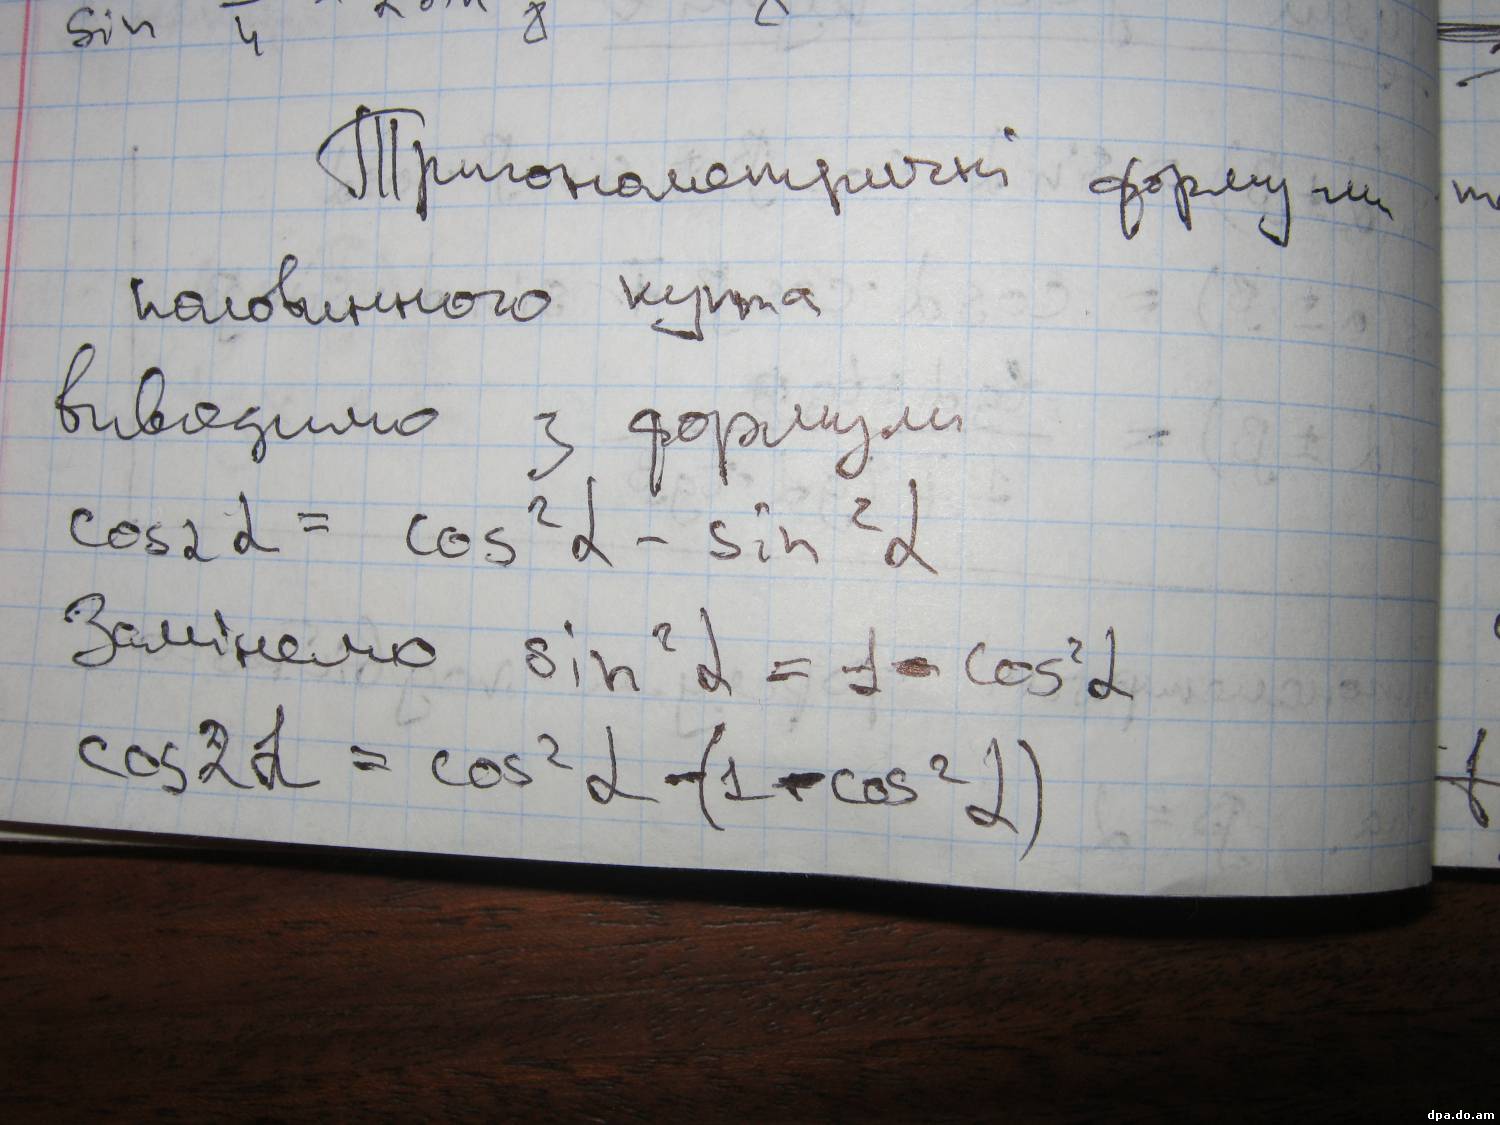 sin π/4 2 sin 8
Тригонометричні формули
половинного кута
виводимо з формули
cos2α = cos²α - sin²α
Замінемо sin²α = 1 - cos²α
cos2α = cos²α - (1 - cos²α)
dpa.do.am